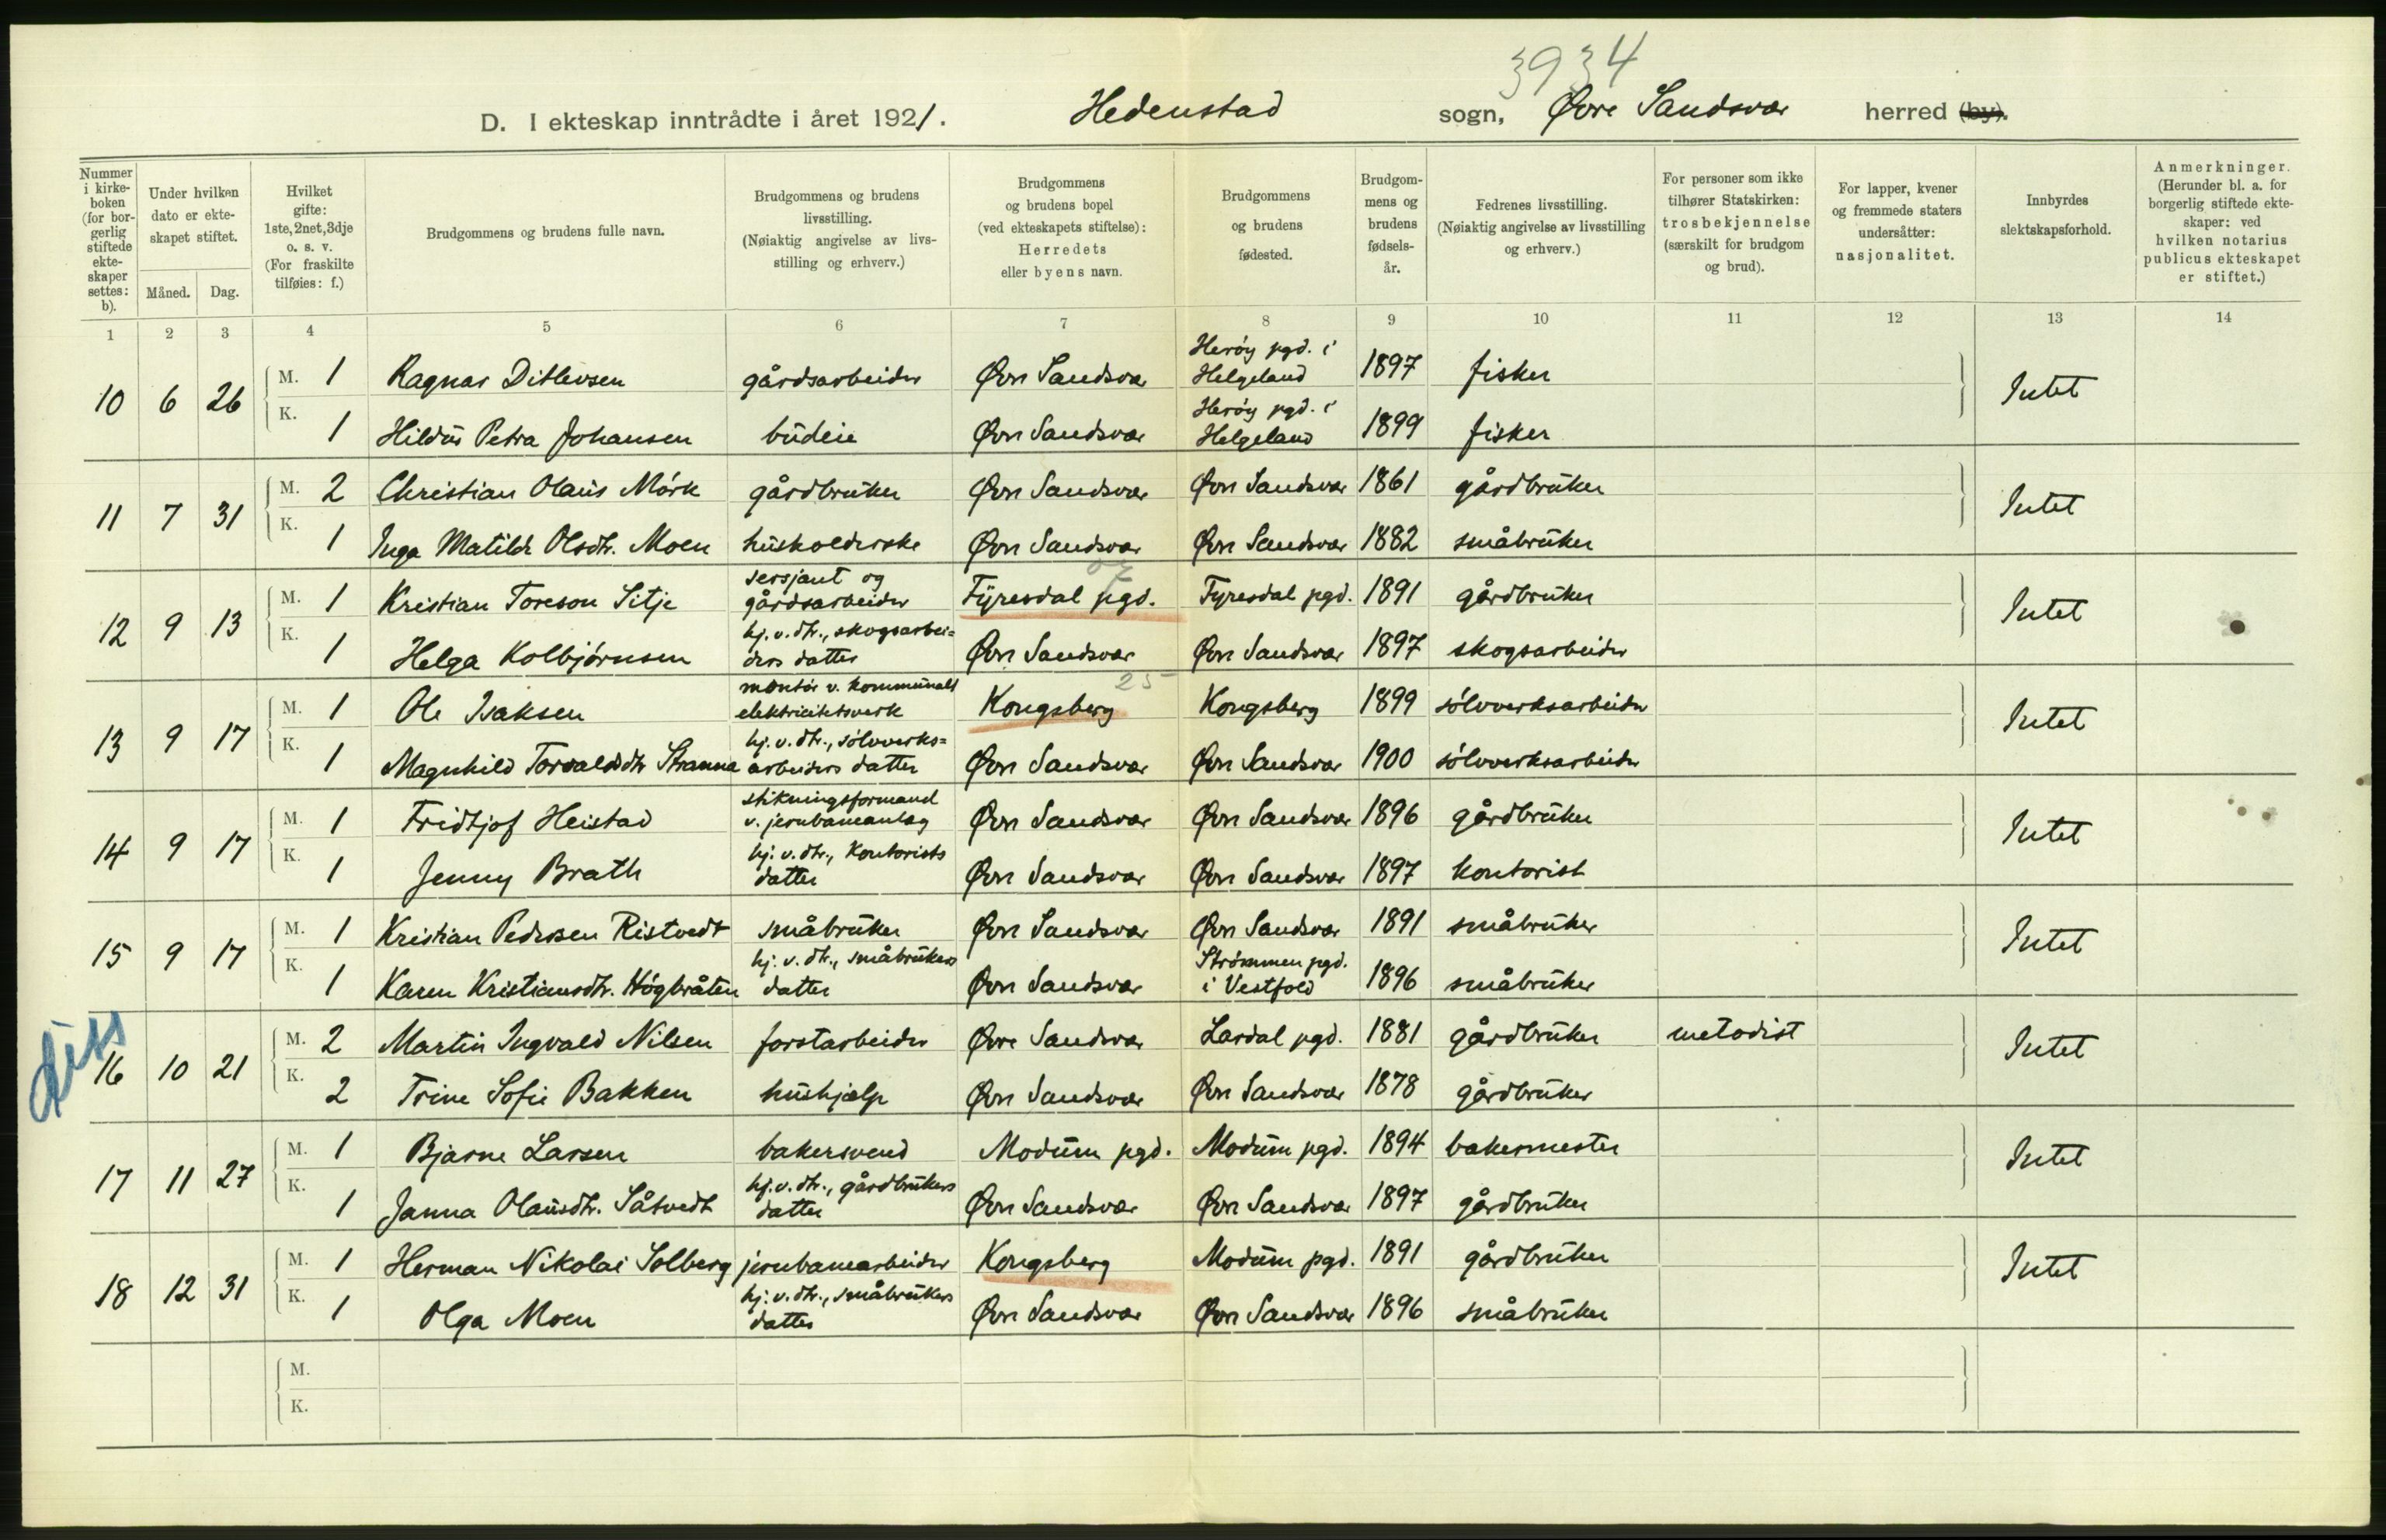 3934
D. I ekteskap inntrådte i året 1921. Hedenstad sogn, Øvre Sandsvær herred (by).
Nummer i kirke-boken (for bor-gerlig stiftede ekte-skaper settes: b).
Under hvilken dato er ekte-skapet stiftet.
Måned. Dag.
Hvilket gifte: 1ste, 2net, 3dje o. s. v. (For fraskilte tilføies: f.)
Brudgommens og brudens fulle navn.
Brudgommens og brudens livsstilling. (Nøiaktig angivelse av livs-stilling og erhverv.)
Brudgommens og brudens bopel (ved ekteskapets stiftelse): Herredets eller byens navn.
Brudgommens og brudens fødested.
Brudgom-mens og brudens fødsels-år.
Fedrenes livsstilling. (Nøiaktig angivelse av livsstilling og erhverv.)
For personer som ikke tilhører Statskirken: trosbekjennelse (særskilt for brudgom og brud).
For lapper, kvener og fremmede staters undersåtter: nasjonalitet.
Innbyrdes slektskapsforhold.
Anmerkninger. (Herunder bl. a. for borgerlig stiftede ekte-skaper: ved hvilken notarius publicus ekteskapet er stiftet.)
1 2 3 4 5 6 7 8 9 10 11 12 13 14
10 6 26 M. 1 Ragnar Ditlevsen gårdsarbeider Øvre Sandsvær Herøy pgd. i Helgeland 1897 fisker Intet
K. 1 Hildus Petra Johansen budeie Øvre Sandsvær Herøy pgd. i Helgeland 1899 fisker
11 7 31 M. 2 Christian Olaus Mörk gårdbruker Øvre Sandsvær Øvre Sandsvær 1861 gårdbruker Intet
K. 1 Inga Matilde Olsdtr. Moen husholderske Øvre Sandsvær Øvre Sandsvær 1882 småbruker
12 9 13 M. 1 Kristian Toreson Sitje sersjant og gårdsarbeider Fyresdal pgd. Fyresdal pgd. 1891 gårdbruker Intet
K. 1 Helga Kolbjørnsen hj. v. dtr., skogsarbei=ders datter Øvre Sandsvær Øvre Sandsvær 1897 skogsarbeider
25
13 9 17 M. 1 Ole Isaksen montör v. kommunalt elektricitetsverk Kongsberg Kongsberg 1899 sölvverksarbeider Intet
K. 1 Magnhild Torvaldsdtr Stranna hj. v. dtr., sölvverks=arbeiders datter Øvre Sandsvær Øvre Sandsvær 1900 sölvverksarbeider
14 9 17 M. 1 Fridtjof Heistad stikningsformand v. jernbaneanlæg Øvre Sandsvær Øvre Sandsvær 1896 gårdbruker Intet
K. 1 Jenny Brath hj. v. dtr., kontorists datter Øvre Sandsvær Øvre Sandsvær 1897 kontorist
15 9 17 M. 1 Kristian Pedersen Ristvedt småbruker Øvre Sandsvær Øvre Sandsvær 1891 småbruker Intet
K. 1 Karen Kristiansdtr. Högbråten hj. v. dtr., småbrukers datter Øvre Sandsvær Strømmen pgd. i Vestfold 1896 småbruker
Diss
16 10 21 M. 2 Martin Ingvald Nilsen forstarbeider Øvre Sandsvær Lardal pgd. 1881 gårdbruker metodist Intet
K. 2 Trine Sofie Bakken hushjælp Øvre Sandsvær Øvre Sandsvær 1878 gårdbruker
17 11 27 M. 1 Bjarne Larsen bakersvend Modum pgd. Modum pgd. 1894 bakermester Intet
K. 1 Janna Olausdtr. Såtvedt hj. v. dtr., gårdbrukers datter Øvre Sandsvær Øvre Sandsvær 1897 gårdbruker
18 12 31 M. 1 Herman Nikolai Solberg jernbanearbeider Kongsberg Modum pgd. 1891 gårdbruker Intet
K. 1 Olga Moen hj. v. dtr., småbrukers datter Øvre Sandsvær Øvre Sandsvær 1896 småbruker
M.
K.